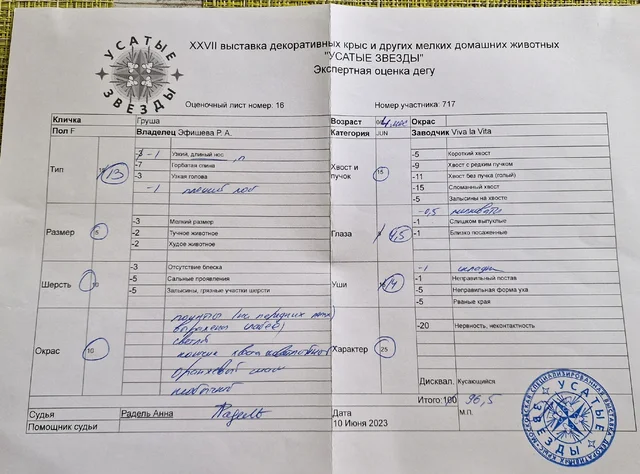 УСАТЫЕ ЗВЕЗДЫ
XXVII выставка декоративных крыс и других мелких домашних животных
"УСАТЫЕ ЗВЕЗДЫ"
Экспертная оценка дегу
Оценочный лист номер: 16
Номер участника: 717
Кличка Груша Возраст 4 мес Окрас
Пол F Владелец Эфишева Р. А. Категория JUN Заводчик Viva la Vita
Тип 13
-1 Узкий, длинный нос
-7 Горбатая спина
-3 Узкая голова
-1
Хвост и пучок 15
-5 Короткий хвост
-9 Хвост с редким пучком
-11 Хвост без пучка (голый)
-15 Сломанный хвост
-5 Залысины на хвосте
Размер 5
-3 Мелкий размер
-2 Тучное животное
-2 Худое животное
Глаза 4,5
-0,5
Слишком выпуклые
-1 Близко посаженные
Шерсть 10
-3 Отсутствие блеска
-5 Сальные проявления
-5 Залысины, грязные участки шерсти
Уши 14
-1 складки
-1 Неправильный постав
-5 Неправильная форма уха
-5 Рваные края
Окрас 10
светла
Характер 25
-20 Нервность, неконтактность
Дисквал. Кусающийся
Итого: 100 96,5
М.П.
Судья Радель Анна Радель
Помощник судьи
Дата
10 Июня 2023
МОСКОВСКАЯ СПЕЦИАЛИЗИРОВАННАЯ ВЫСТАВКА ДЕКОРАТИВНЫХ КРЫС
УСАТЫЕ ЗВЕЗДЫ